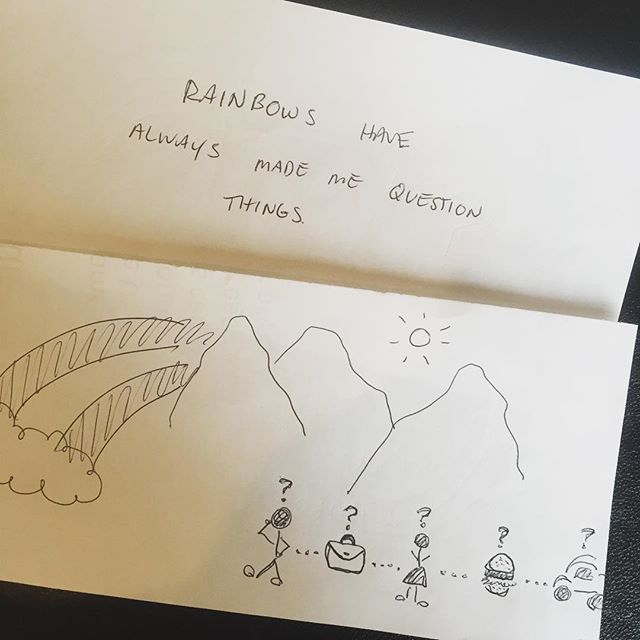 RAINBOWS HAVE
ALWAYS MADE ME QUESTION
THINGS.
? ? ? ? ?